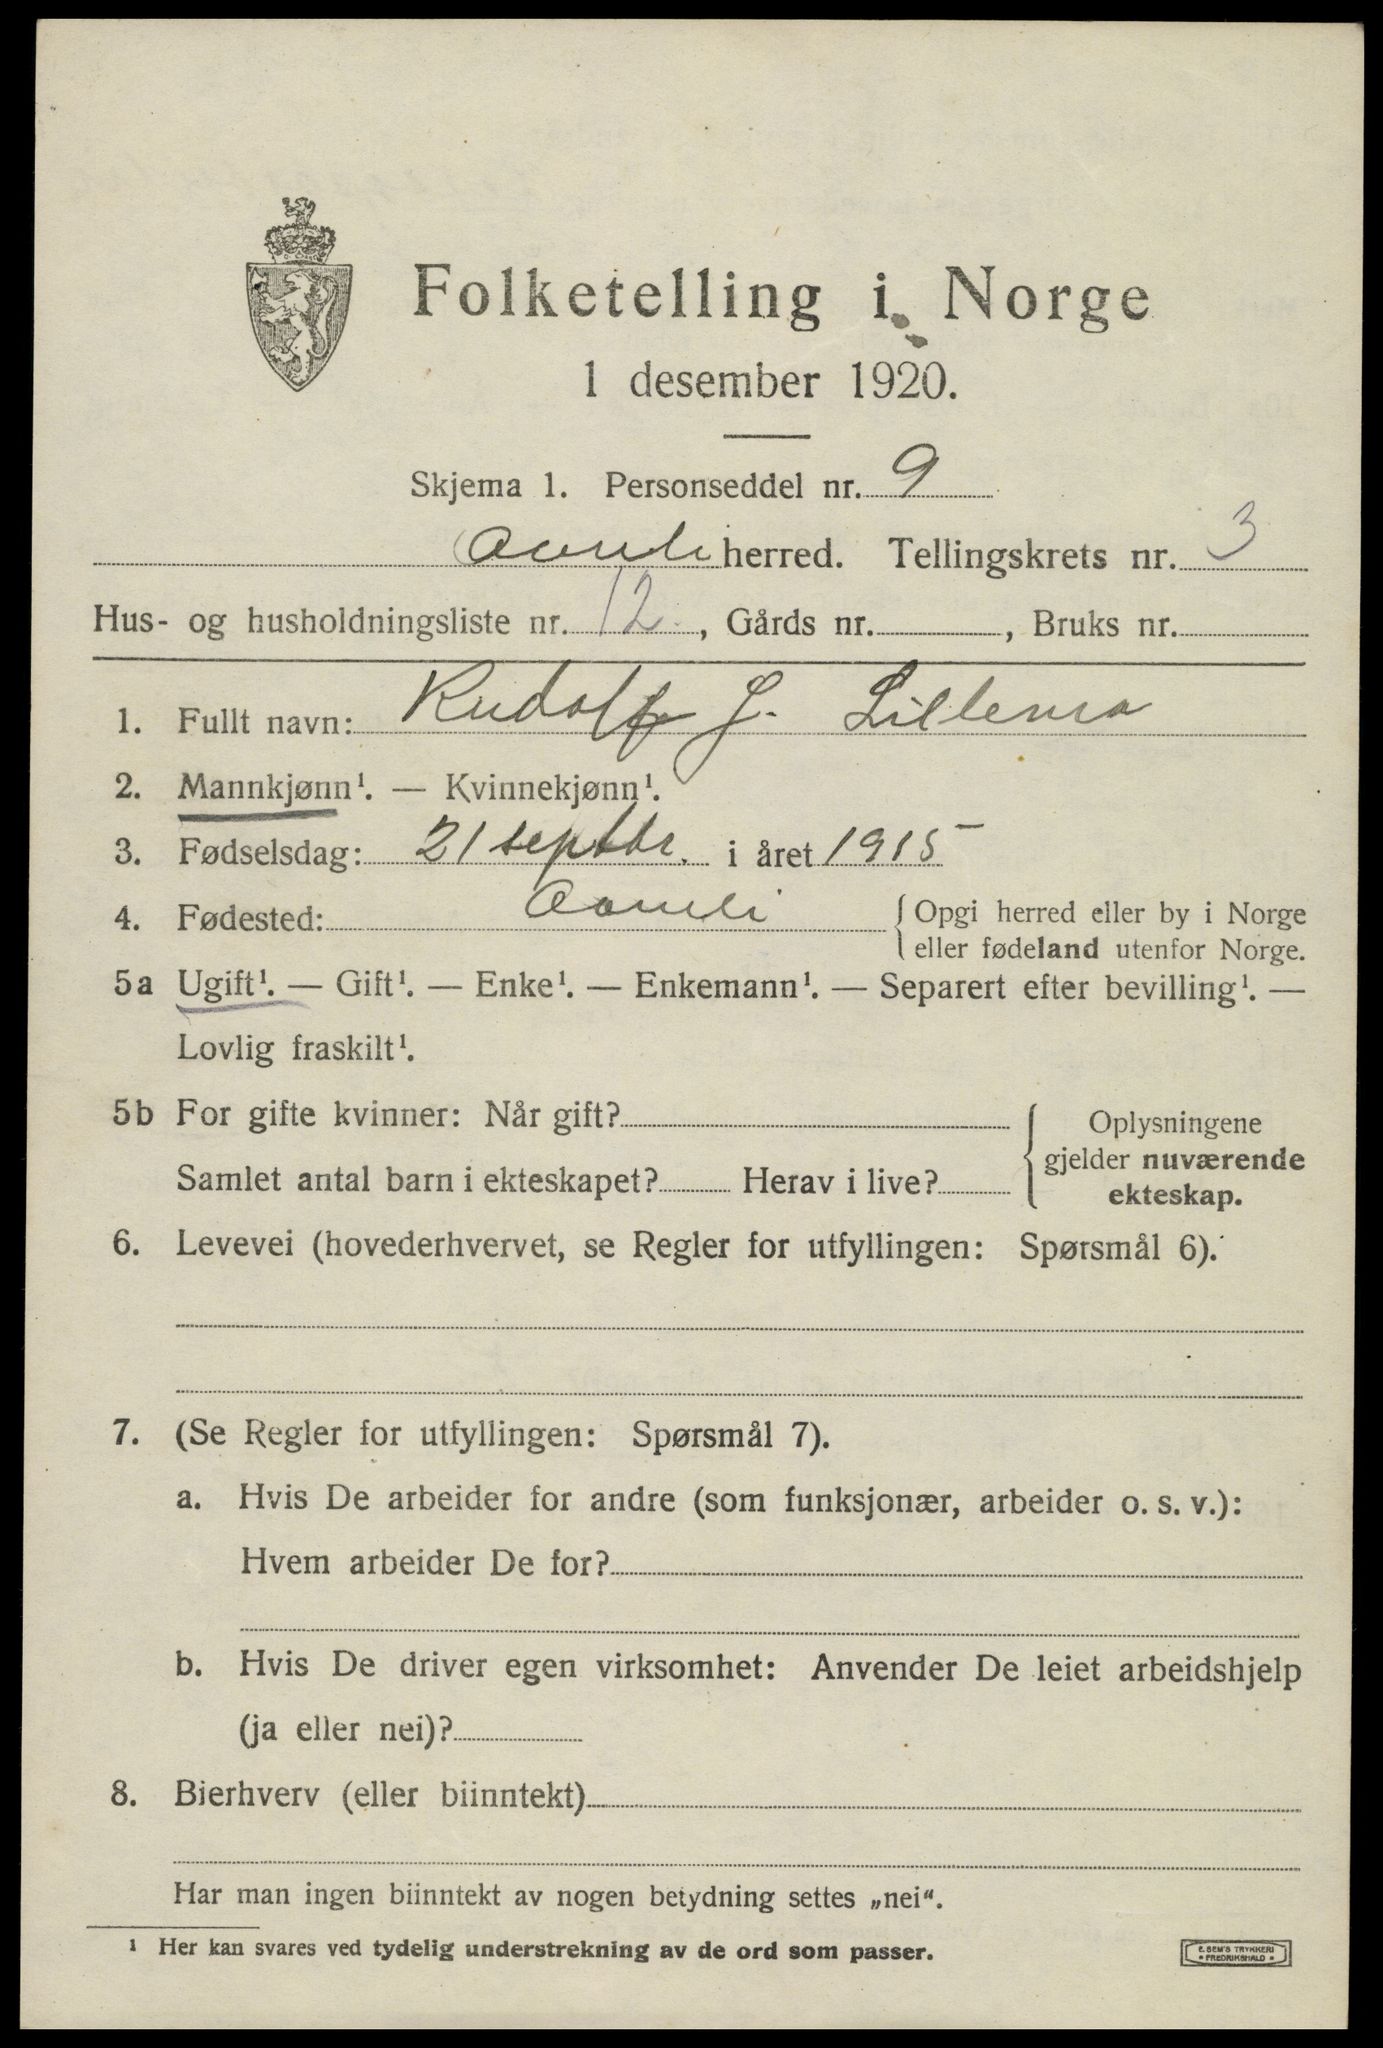 Folketelling i Norge
1 desember 1920.
Skjema 1. Personseddel nr. 9
Aamli herred. Tellingskrets nr. 3
Hus- og husholdningsliste nr. 12., Gårds nr. , Bruks nr.
1. Fullt navn: Rudolf J. Lillemo
2. Mannkjønn¹. — Kvinnekjønn¹.
3. Fødselsdag: 21 septbr. i året 1915
4. Fødested: Aamli { Opgi herred eller by i Norge
eller fødeland utenfor Norge.
5a Ugift¹. — Gift¹. — Enke¹. — Enkemann¹. — Separert efter bevilling¹. —
Lovlig fraskilt¹.
5b For gifte kvinner: Når gift? { Oplysningene
gjelder nuværende
Samlet antal barn i ekteskapet? Herav i live?
ekteskap.
6. Levevei (hovederhvervet, se Regler for utfyllingen: Spørsmål 6).
7. (Se Regler for utfyllingen: Spørsmål 7).
a. Hvis De arbeider for andre (som funksjonær, arbeider o. s. v.):
Hvem arbeider De for?
b. Hvis De driver egen virksomhet: Anvender De leiet arbeidshjelp
(ja eller nei)?
8. Bierhverv (eller biinntekt)
Har man ingen biinntekt av nogen betydning settes „nei“.
¹ Her kan svares ved tydelig understrekning av de ord som passer.
E. SEM'S TRYKKERI
• FREDRIKSHALD •